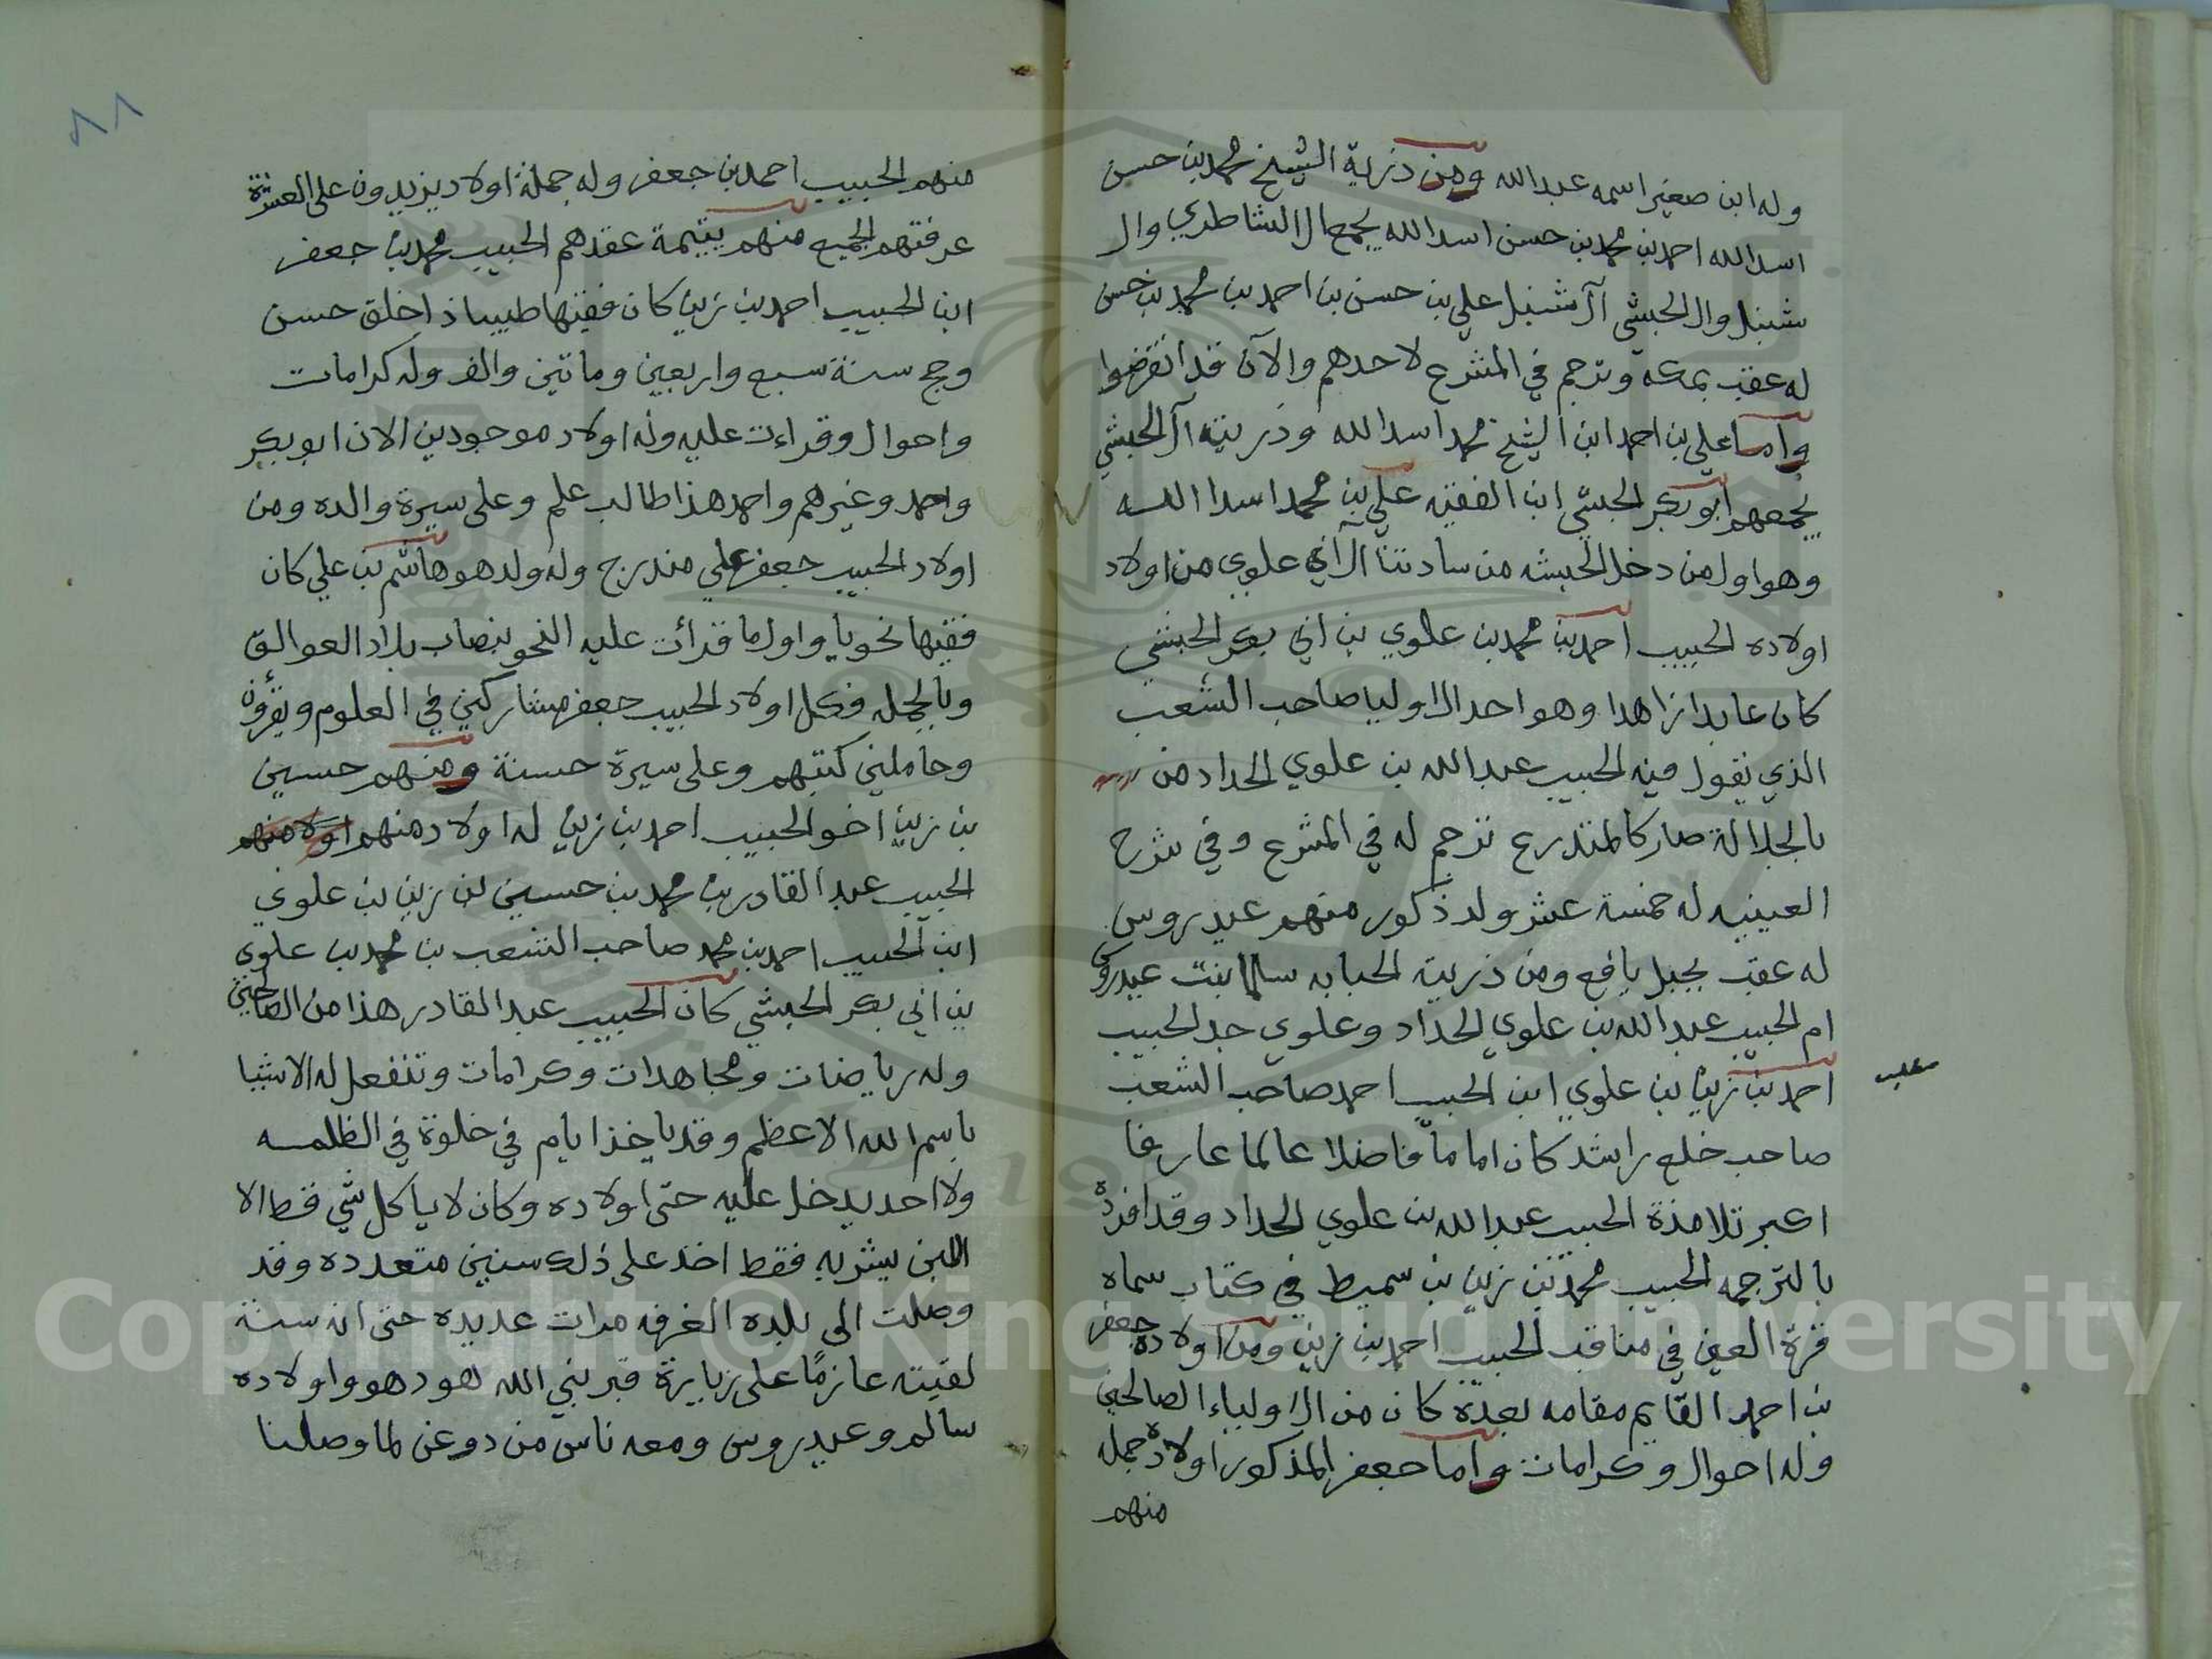 وله ابن صغير اسمه عبدالله ومن ذرية الشيخ محمد بن حسن
اسد الله احمد بن محمد بن حسن اسد الله يجمع ال الشاطري وال
شنبل وال الحبشي آل شنبل علي بن حسن بن احمد بن محمد بن حسن
له عقب بمكه وترجم في المشرع لاحدهم والآن قد انقرضوا
واما علي بن احمد ابن الشيخ محمد اسد الله وذريته آل الحبشي
يجمعهم ابو بكر الحبشي ابن الفقيه علي بن محمد اسد الله
وهو اول من دخل الحبشه من سادتنا آل ابي علوي من اولاد
اولاده الحبيب احمد بن محمد بن علوي بن ابي بكر الحبشي
كان عابدا زاهدا وهو احد الاوليا صاحب الشعب
الذي يقول فيه الحبيب عبد الله بن علوي الحداد من
بالجلالة صار كالمتدرع ترجم له في المشرع وفي شرح
العينيه له خمسة عشر ولد ذكور منهم عيدروس
له عقب بجبل يافع ومن ذريته الحبابه سلما بنت عيدروس
ام الحبيب عبد الله بن علوي الحداد وعلوي جد الحبيب
احمد بن زين بن علوي ابن الحبيب احمد صاحب الشعب
مطلب
صاحب خلع راشد كان اماما فاضلا عالما عارفا
اكبر تلامذة الحبيب عبد الله بن علوي الحداد وقد افرده
بالترجمه الحبيب محمد بن زين بن سميط في كتاب سماه
قرة العين في مناقب الحبيب احمد بن زين ومن اولاده جعفر
بن احمد القايم مقامه بعده كان من الاولياء الصالحين
وله احوال وكرامات واما جعفر المذكور اولاده جمله
منهم
٨٨
منهم الحبيب احمد بن جعفر وله جملة اولاد يزيدون على العشرة
عرفتهم الجميع منهم يتيمة عقدهم الحبيب محمد بن جعفر
ابن الحبيب احمد بن زين كان فقيها طبيبا ذا خلق حسن
وحج سنة سبع واربعين وماتين والف وله كرامات
واحوال وقراءت عليه وله اولاد موجودين الان ابو بكر
واحمد وغيرهم واحمد هذا طالب علم وعلى سيرة والده ومن
اولاد الحبيب جعفر علي مندرج وله ولد هو هاشم بن علي كان
فقيها نحويا واول ما قرأت عليه النحو بنصاب بلاد العوالق
وبالجمله فكل اولاد الحبيب جعفر مشاركين في العلوم ويقرؤن
وحاملين كتبهم وعلى سيرة حسنة ومنهم حسين
بن زين اخو الحبيب احمد بن زين له اولاد منهم اولا منهم
الحبيب عبد القادر بن محمد بن حسين بن زين بن علوي
ابن الحبيب احمد بن محمد صاحب الشعب بن محمد بن علوي
بن ابي بكر الحبشي كان الحبيب عبد القادر هذا من الصالحين
وله رياضات ومجاهدات وكرامات وتنفعل له الاشيا
باسم الله الاعظم وقد ياخذ ايام في خلوة في الظلمه
ولا احد يدخل عليه حتى اولاده وكان لا ياكل شي قط الا
اللبن يشربه فقط اخذ على ذلك سنين متعدده وقد
وصلت الى بلده الغرفه مرات عديده حتى انه سنة
لقيته عازمًا على زيارة قبر نبي الله هود هو واولاده
سالم وعيدروس ومعه ناس من دوعن لما وصلنا
Copyright © King Saud University